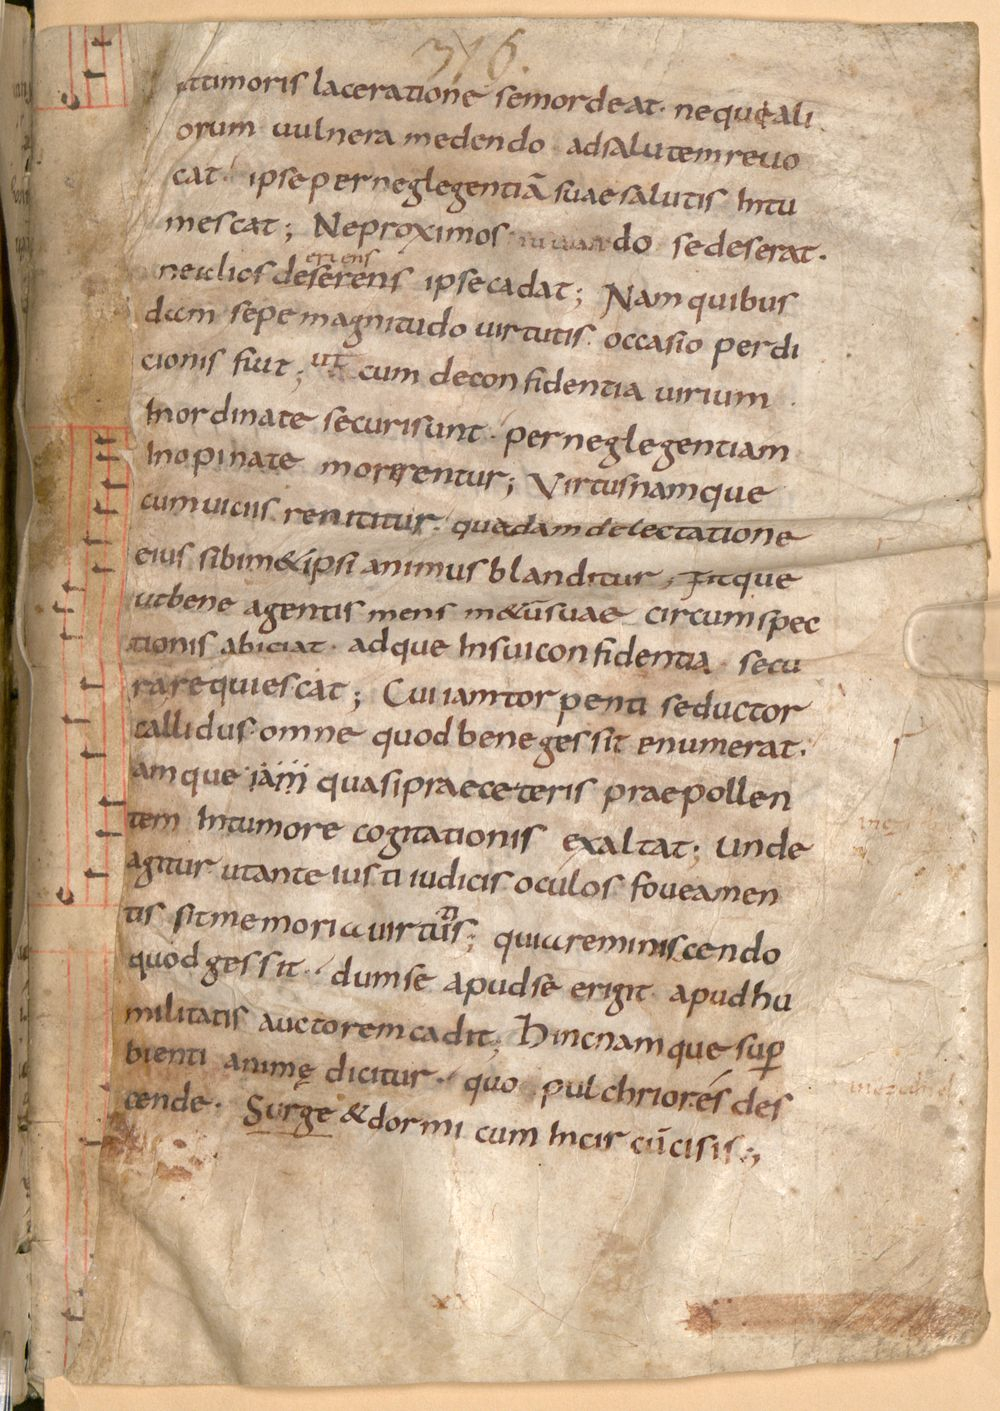 376.
et timoris laceratione se mordeat. neque ali
orum vulnera medendo ad salutem revo
cat. ipse per neglegentiā suae salutis intu
mescat; Ne proximos iuvando se deserat.
ne alios deserens eriens ipse cadat; Nam quibus
dam sepe magnitudo virtutis occasio perdi
cionis fuit; ut cum de confidentia virium
inordinate securi sunt. per neglegentiam
inopinate morerentur; Virtus namque
cum viciis renititur. quadam delectatione
eius sibim&ipsi animus blanditur, Fitque
ut bene agentis mens m&ū suae circumspec
tionis abiciat. adque in sui confidentia secu
ra requiescat; Cui iam torpenti seductor
callidus omne quod bene gessit enumerat.
eamque iam quasi prae ceteris praepollen
tem in tumore cogitationis exaltat; unde
agitur ut ante iusti iudicis oculos fovea men
tis sit memoria virtutis; quia reminiscendo
quod gessit. dum se apud se erigit apud hu
militatis auctorem cadit; Hinc namque sup
bienti animę dicitur. quo pulchriores des
cende. Surge & dormi cum incircūcisis;